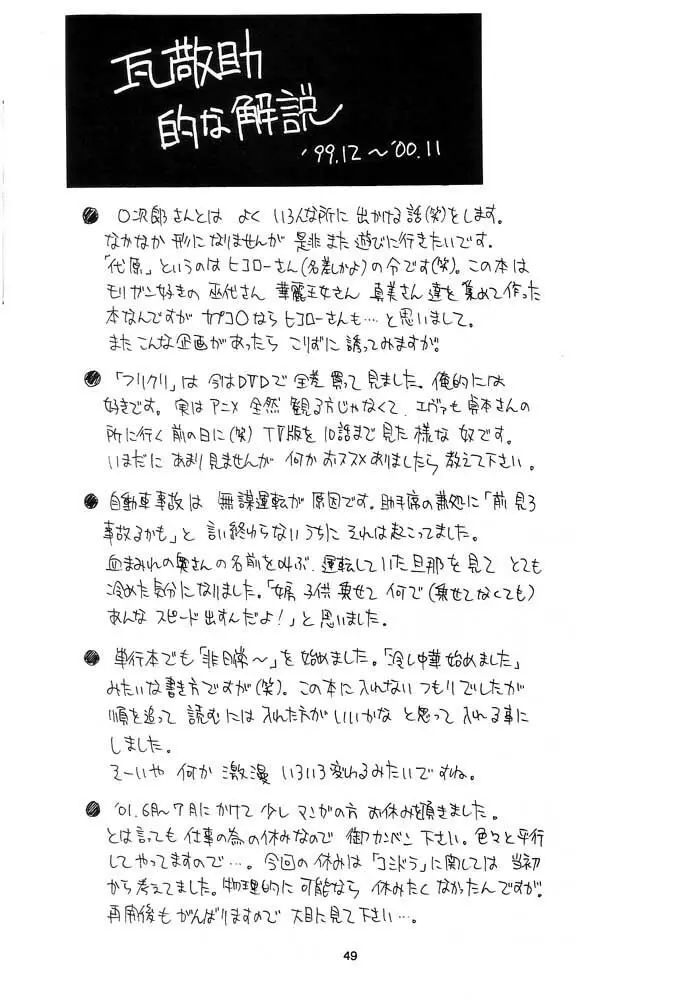 瓦敬助
的な解説
'99.12～'00.11
● ○次郎さんとは よく いろんな所に 出かける話(笑)をします。
なかなか 形になりませんが 是非 また 遊びに行きたいです。
「代原」というのは ヒコローさん(名差しかよ)の 令です(笑)。この本は
モリガン好きの 巫代さん 華麗王女さん 真美さん 達を 集めて 作った
本なんですが カプコ○なら ヒコローさんも…と思いまして。
また こんな 企画が あったら こりずに 誘ってみますが。
● 「フリクリ」は 今はDVDで 全差 買って 見ました。俺的には
好きです。実は アニメ 全然 観る方じゃなくて、エヴァも 貞本さんの
所に行く 前の日に(笑) TV版を 10話まで 見た 様な 奴です。
いまだに あまり見ませんが 何か おススメ ありましたら 教えて下さい。
● 自動車事故は 無謀運転が 原因です。助手席の 「前見ろ
事故るかも」と 言い終わらない うちに それは起こってました。
血まみれの奥さんの名前を叫ぶ、運転していた旦那を見て とても
冷めた気分になりました。「嫁 子供 乗せて 何で(乗せてなくても)
あんな スピード 出すんだよ!」と 思いました。
● 単行本でも「非日常～」を 始めました。「冷し中華 始めました」
みたいな書き方ですが(笑)。この本に入れない つもりでしたが
順を追って 読むには 入れた方が いいかな と思って 入れる事に
しました。
そーいや 何か 激漫 いろいろ変わるみたいですね。
● '01.6月～7月にかけて 少し マンガの方 お休みを頂きました。
とは言っても 仕事の為の休みなので 御カンベン 下さい。色々と平行
してやってますので…。今回の休みは「コミドラ」に関しては 当初
から考えてました。物理的に可能なら 休みたく なかったんですが。
再開後も がんばりますので 大目に見て下さい…。
49